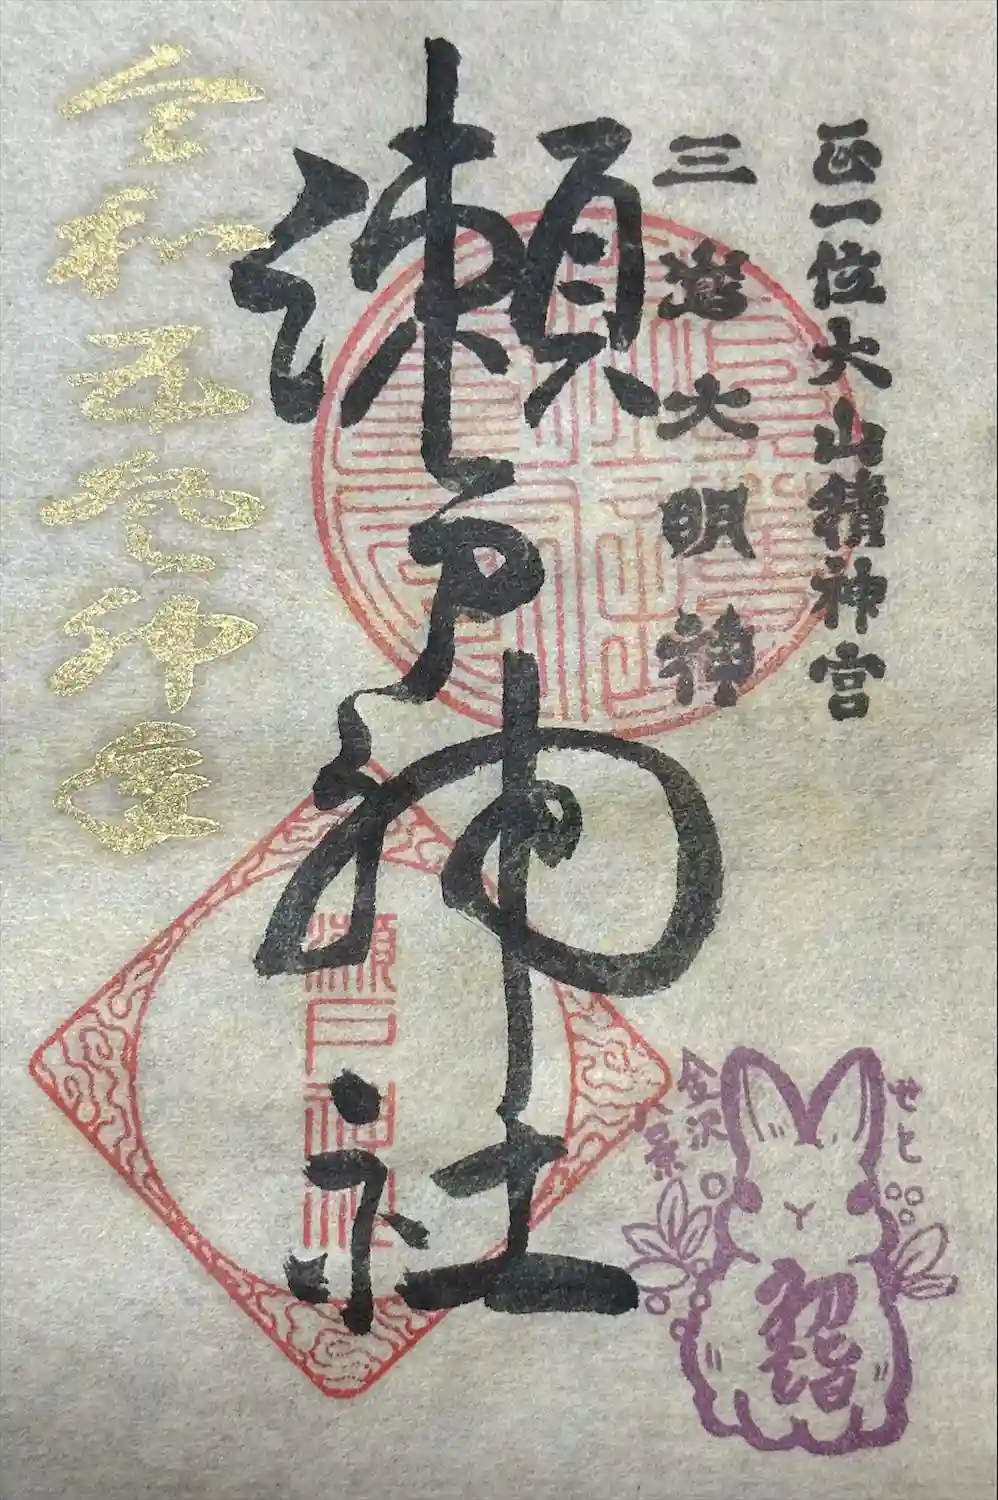 正一位大山積神宮
三嶌大明神
瀬戸神社
令和五癸卯神度
瀬戸神社
せと
金沢八景
初詣